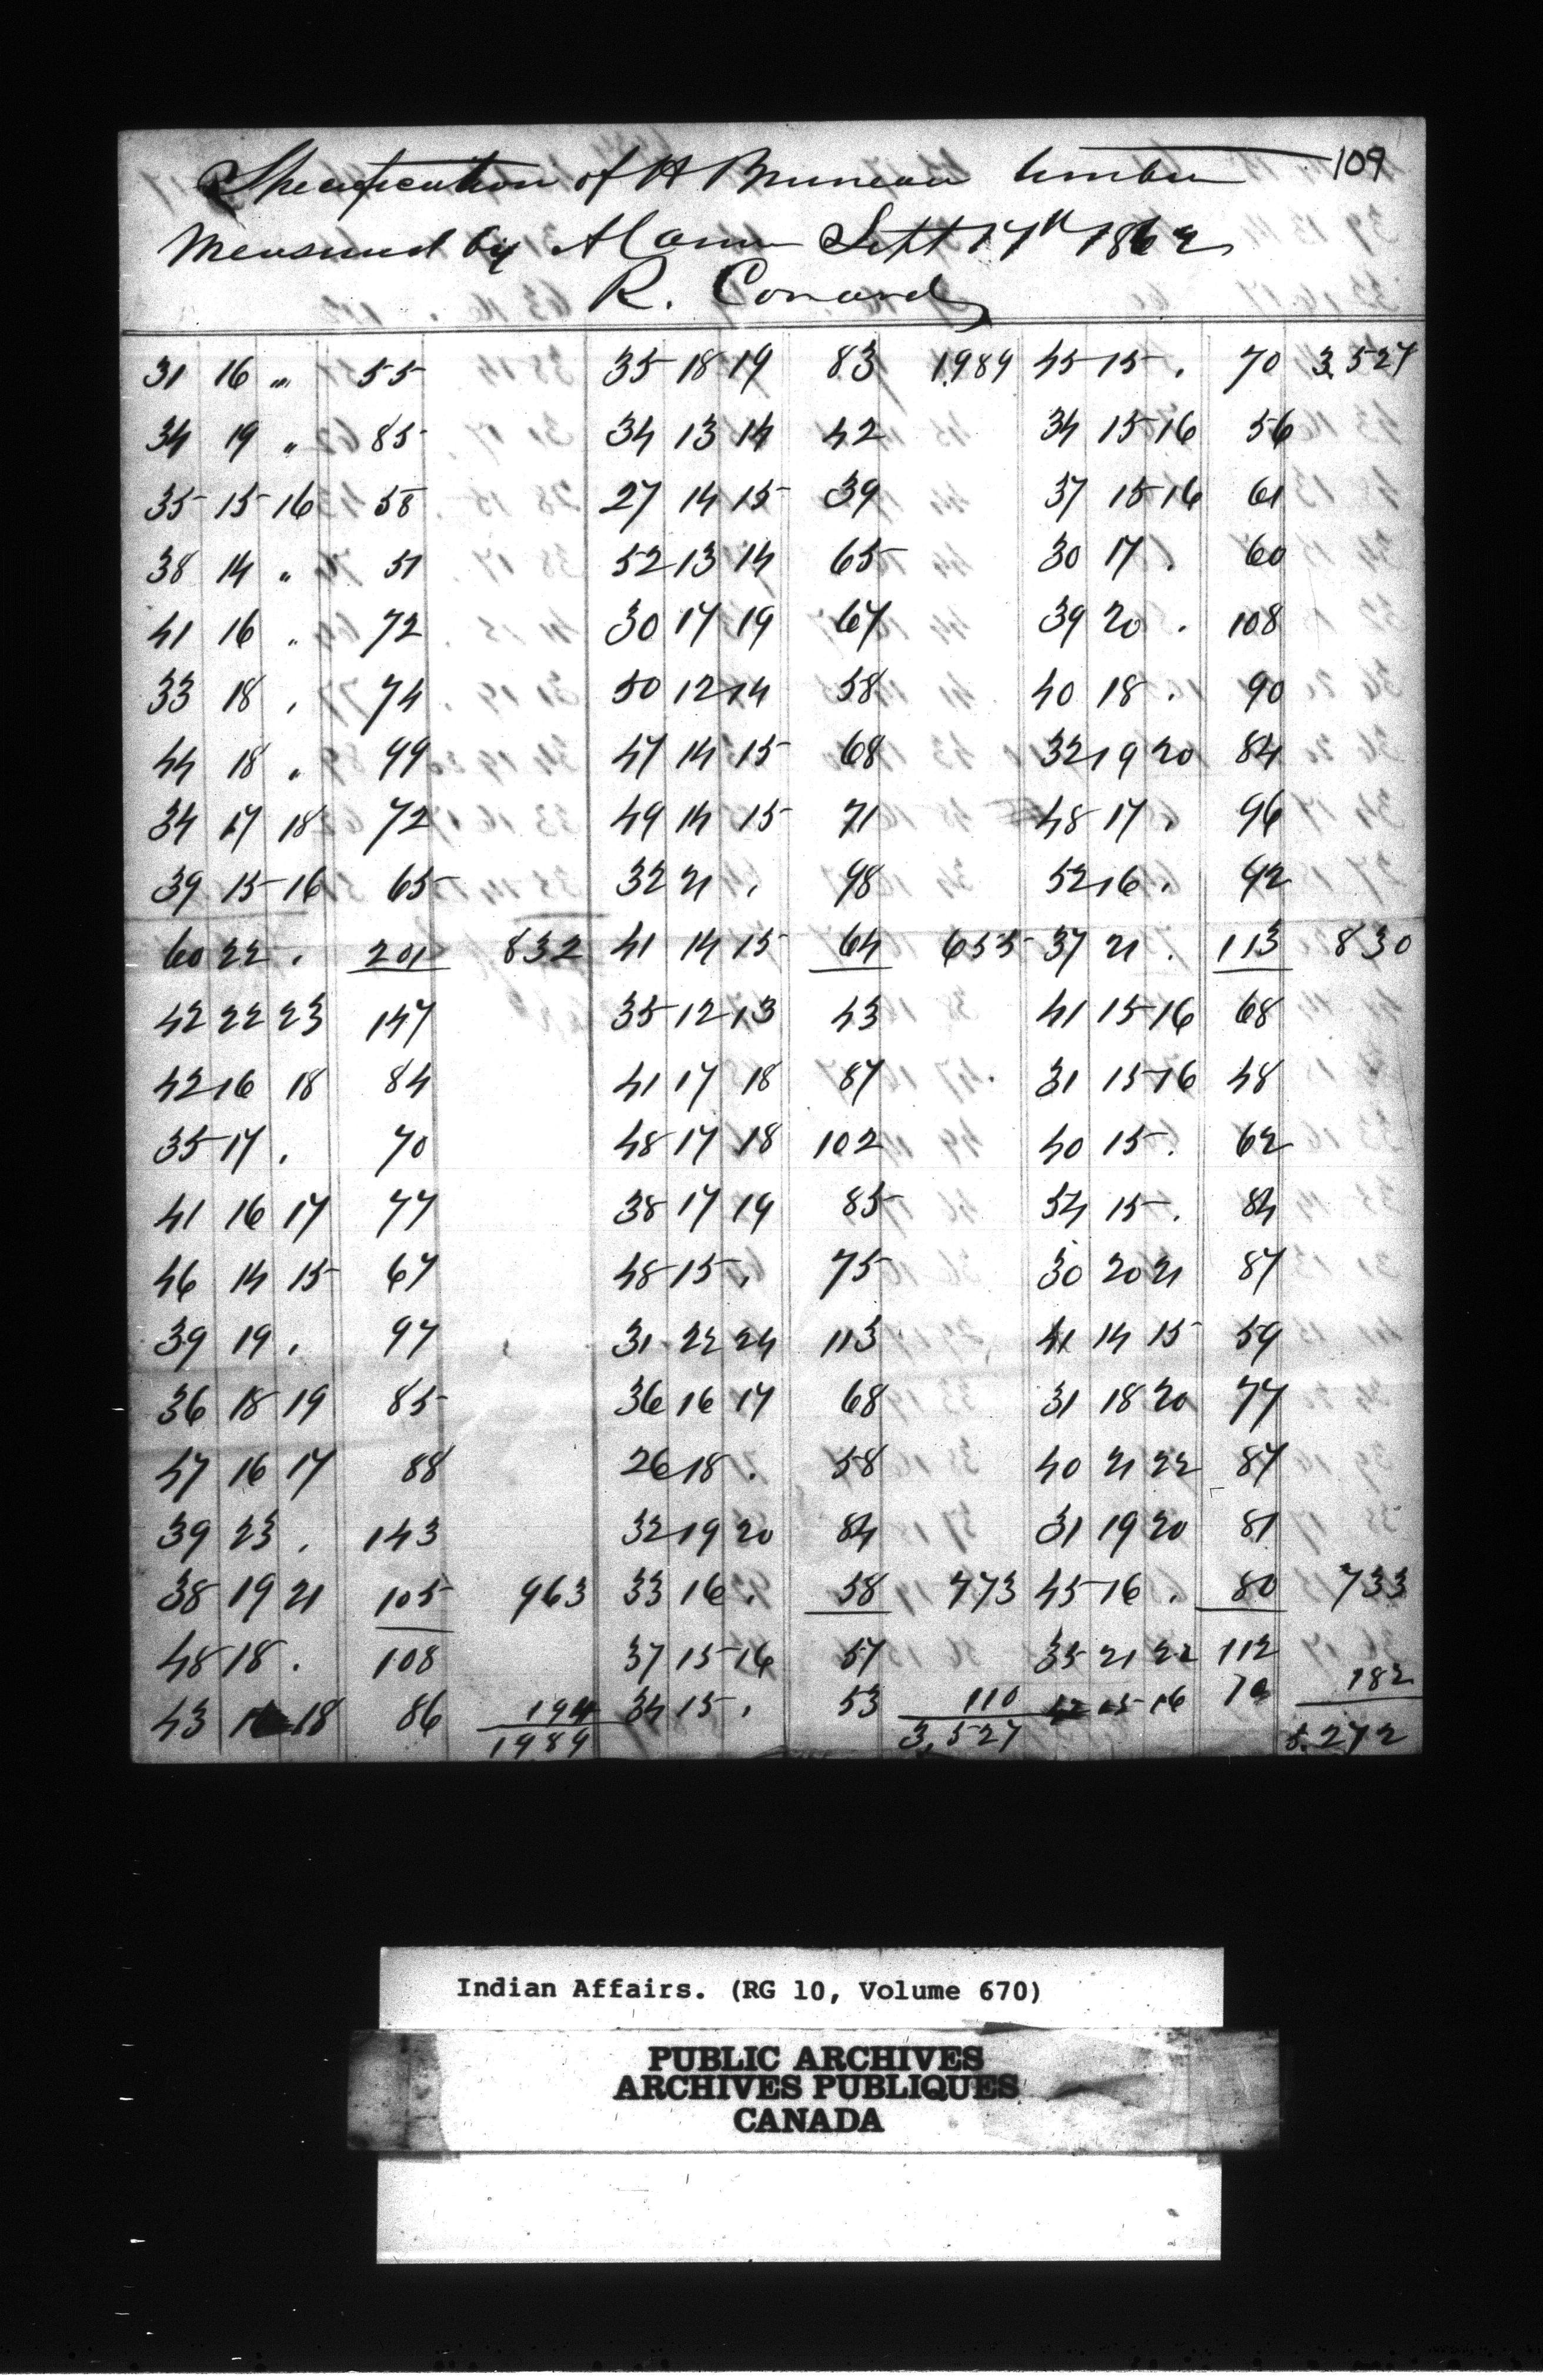 109
Specification of H Bruneau timber
Measured by A Sept 17th 1862
R. Conard
31 16 " 55 35 18 19 83 1989 45 15 . 70 3,527
34 19 " 85 34 13 14 42 34 15 16 56
35 15 16 58 27 14 15 39 37 15 16 61
38 14 " 51 52 13 14 65 30 17 . 60
41 16 " 72 30 17 19 67 39 20 . 108
33 18 . 74 50 12 14 58 40 18 . 90
44 18 . 99 47 14 15 68 32 19 20 84
34 17 18 72 49 14 15 71 48 17 . 96
39 15 16 65 32 21 . 98 52 16 . 92
60 22 . 201 832 41 14 15 64 655 37 21 . 113 830
42 22 23 147 35 12 13 43 41 15 16 68
42 16 18 84 41 17 18 87 31 15 16 48
35 17 . 70 48 17 18 102 40 15 . 62
41 16 17 77 38 17 19 85 54 15 . 84
46 14 15 67 48 15 . 75 30 20 21 87
39 19 . 97 31 22 24 113 41 14 15 59
36 18 19 85 36 16 17 68 31 18 20 77
47 16 17 88 26 18 . 58 40 21 22 87
39 23 . 143 32 19 20 84 31 19 20 81
38 19 21 105 963 33 16 . 58 773 45 16 . 80 733
48 18 . 108 37 15 16 57 35 21 22 112
43 18 86 194 34 15 . 53 110 42 15 16 70 182
1989 3,527 5.272
Indian Affairs. (RG 10, Volume 670)
PUBLIC ARCHIVES
ARCHIVES PUBLIQUES
CANADA